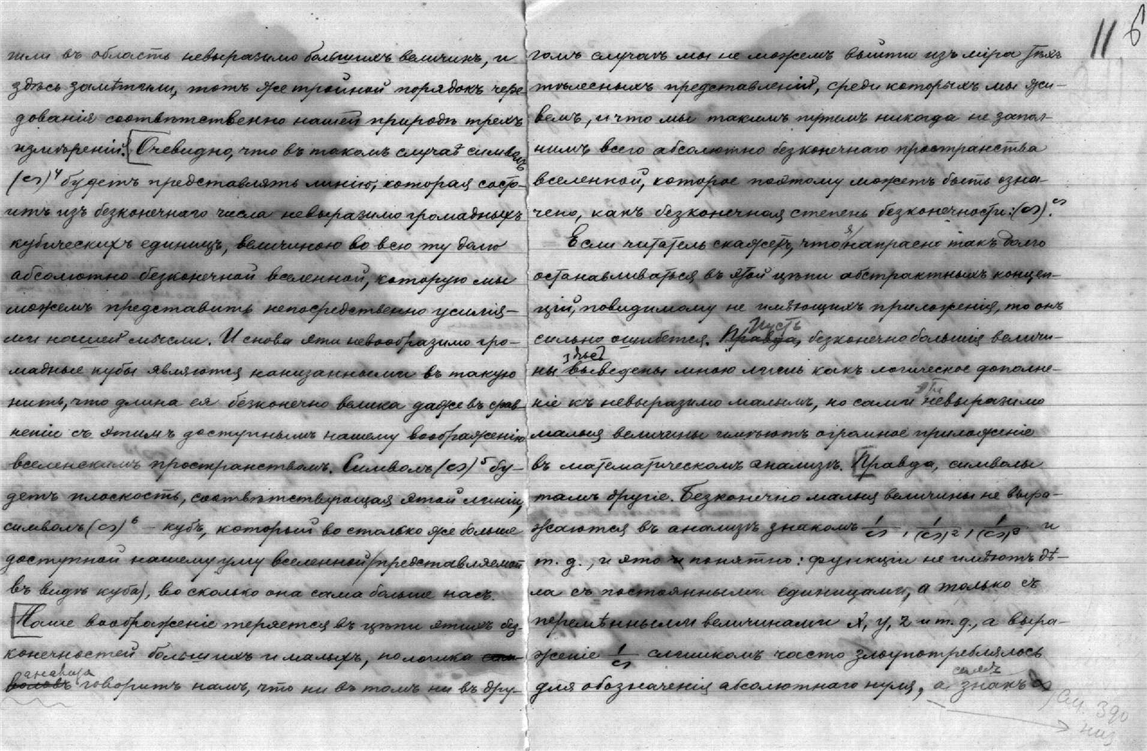 11 6
гили въ область невыразимо большихъ величинъ, и
здѣсь замѣтили, тотъ же тройной порядокъ чере
дованія соотвѣтственно нашей природѣ трехъ
измѣреній. [Очевидно, что въ такомъ случаѣ символъ
(∞)⁴ будетъ представлять линію, которая состо-
итъ изъ безконечнаго числа невыразимо громадныхъ
кубическихъ единицъ, величиною во всю ту долю
абсолютно безконечной вселенной, которую мы
можемъ представить непосредственно усилія-
ми нашей мысли. И снова эти невообразимо гро-
мадные кубы являются нанизанными въ такую
нить, что длина ея безконечно велика даже въ срав
неніи съ этимъ доступнымъ нашему воображенію
вселенскимъ пространствомъ. Символъ (∞)⁵ бу-
детъ плоскость, соотвѣтствующая этой линіи,
символъ (∞)⁶ – кубъ, который во столько же больше
доступной нашему уму вселенной (представляемой
въ видѣ куба), во сколько она сама больше насъ.
[Наше воображеніе теряется въ цѣпи этихъ без
конечностей большихъ и малыхъ, но логика
анализа
говоритъ намъ, что ни въ томъ ни въ дру-
гомъ случаѣ мы не можемъ выйти изъ міра трех
тѣлесныхъ представленій, среди которыхъ мы жи-
вемъ, и что мы такимъ путемъ никогда не запол-
нимъ всего абсолютно безконечнаго пространства
вселенной, которое поэтому можетъ быть озна-
чено, какъ безконечная степень безконечности: (∞)^∞.
Если читатель скажетъ, что я напрасно такъ долго
останавливаться въ этой цѣпи абстрактныхъ концеп-
цій, повидимому не имѣющихъ приложенія, то онъ
Пусть
сильно ошибется. Правда, безконечно большія величи-
здѣсь
ны выведены мною лишь какъ логическое дополне-
ніе къ невыразимо малымъ, но сами невыразимо
малыя величины имѣютъ огромное приложеніе
въ математическомъ анализѣ. [Правда, символы
тамъ другіе. Безконечно малыя величины не выра-
жаются въ анализѣ знакомъ 1/∞, 1/(∞)², 1/(∞)³ и
т. д., и это и понятно: функціи не имѣютъ дѣ-
ла съ постоянными единицами, а только съ
перемѣнными величинами x, y, z и т. д., а выра-
женіе 1/∞ слишкомъ часто злоупотреблялось
самъ
для обозначенія абсолютнаго нуля, а знакъ ∞
См. 390
низ